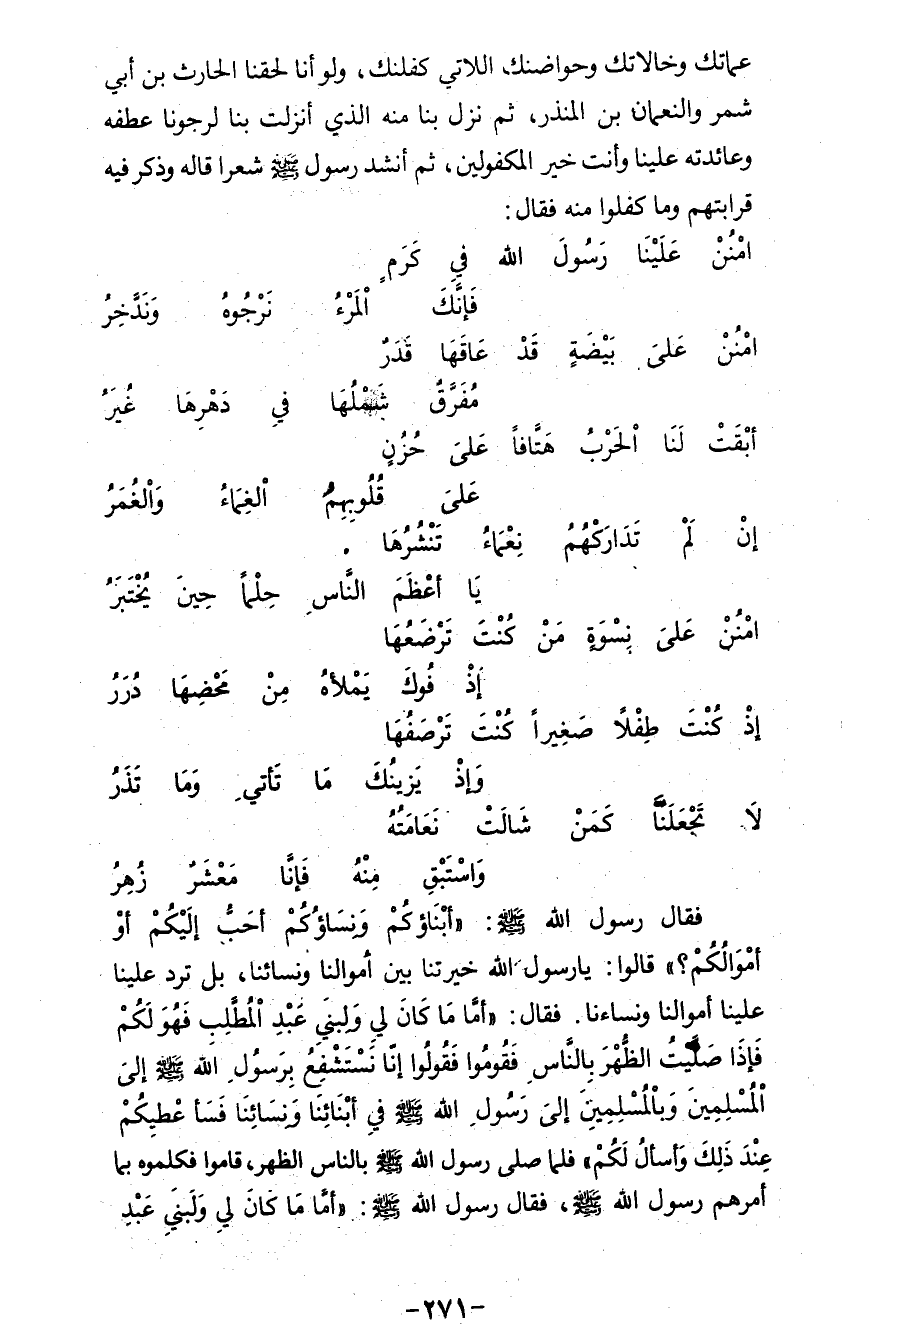 عماتك وخالاتك وحواضنك اللاتي كفلنك، ولو أنا لحقنا الحارث بن أبي
شمر والنعمان بن المنذر، ثم نزل بنا منه الذي أنزلت بنا لرجونا عطفه
وعائدته علينا وأنت خير المكفولين، ثم أنشد رسول ﷺ شعرا قاله وذكر فيه
قرابتهم وما كفلوا منه فقال:
امْنُنْ عَلَيْنَا رَسُولَ الله فِي كَرَمٍ
فَإِنَّكَ اْلمَرْءُ نَرْجُوهُ وَنَدَّخِرُ
امْنُنْ عَلىَ بَيْضَةٍ قَدْ عَاقَهَا قَدَرٌ
مُفَرَّقٌ شَمْلُهَا فِي دَهْرِهَا غُيَرُ
أبْقَتْ لَنَا اْلحَرْبُ هَتَّافاً عَلىَ حُزُنٍ
عَلىَ قُلُوبِهِمُ اْلغِمَاءُ وَاْلغُمَرُ
إنْ لَمْ تَدَارَكْهُمُ نِعْمَاءُ تَنْشُرُهَا .
يَا أعْظَمَ النَّاسِ حِلْماً حِينَ يُخْتَبَرُ
امْنُنْ عَلىَ نِسْوَةٍ مَنْ كُنْتَ تَرْضَعُهَا
إذْ فُوكَ يَمْلأهُ مِنْ مَحْضِهَا دُرَرُ
إذْ كُنْتَ طِفْلاً صَغِيراً كُنْتَ تَرْصَفُهَا
وَإذْ يَزِينُكَ مَا تَأتي وَمَا تَذَرُ
لَا تَجْعَلَنَّا كَمَنْ شَالَتْ نَعَامَتُهُ
وَاسْتَبْقِ مِنْهُ فَإنَّا مَعْشَرٌ زُهِرُ
فقال رسول الله ﷺ: «أبْنَاؤكُمْ وَنِسَاؤُكُمْ أحَبُّ إلَيْكُمْ أوْ
أمْوَالُكُمْ؟» قالوا: يارسول الله خيرتنا بين أموالنا ونسائنا، بل ترد علينا
علينا أموالنا ونساءنا. فقال: «أمَّا مَا كَانَ لي وَلِبنيِ عَبْدِ اْلمُطَّلِبِ فَهُوَ لَكُمْ
فَإذَا صَلَّيتُ الظُّهْرَ بِالنَّاسِ فَقُومُوا فَقُولُوا إنّا نَسْتَشْفِعُ بِرَسُولِ الله ﷺ إلىَ
اْلمُسْلِمِينَ وَبِاْلمُسْلِمِينَ إلىَ رَسُولِ الله ﷺ فِي أبْنَائِنَا وَنِسَائِنَا فَسَأ عْطِيكُمْ
عِنْدَ ذَلِكَ وَأسألُ لَكُمْ» فلما صلى رسول الله ﷺ بالناس الظهر، قاموا فكلموه بما
أمرهم رسول الله ﷺ، فقال رسول الله ﷺ: «أمَّا مَا كَانَ لِي وَلَبنَيِ عَبْدِ
-٢٧١-